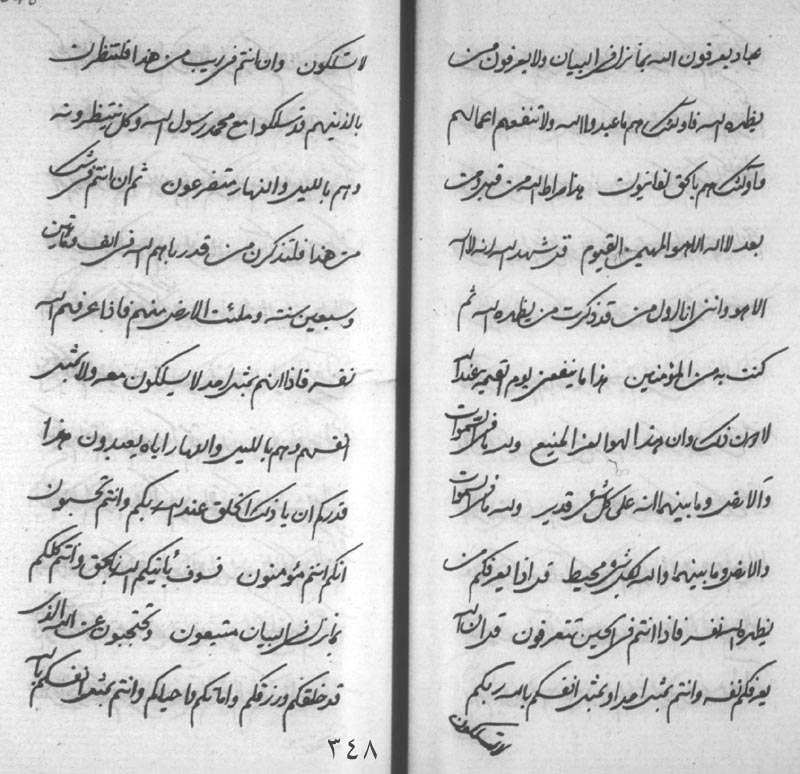 عباد يعرفون الله بما نزل في البيان ولا يعرفون من
يظهره الله فاولئك هم ما عبدوا الله ولا تنفعهم اعمالهم
فاولئك هم بالحق لفانيون هذا صراط الله من قبل ومن
بعد لا اله الا هو المهيمن القيوم قل شهد الله انه لا اله
الا هو وانني انا اول من قد ذكرت من يظهره الله ثم
كنت به من المؤمنين هذا ما ينفعني يوم القيمة عند الله
لا دون ذلك وان هذا لهو العز المنيع ولله ما في السموات
والارض وما بينهما انه على كل شئ قدير ولله ما في السموات
والارض وما بينهما والله بكل شئ محيط قل اذا يعرفكم من
يظهره الله نفسه فاذا انتم في الحين تتعرفون قل ان الله
يعرفكم نفسه وانتم بمثل احد او بمثل انفسكم بالله ربكم
لا تسلكون
لا تسلكون وان انتم في ريب من هذا فلتنظرن
بالذينهم قد سلكوا مع محمد رسول الله وكل ينتظرونه
وهم بالليل والنهار متضرعون ثم ان انتم في شك
من هذا فلتذكرن من قد رباهم الله في الف ومأتين
وسبعين سنة وملئت الارض منهم فاذا عرفهم الله
نفسه فاذا انهم بمثل احد لا يسلكون معه ولا بمثل
انفسهم وهم بالليل والنهار اياه يعبدون هذا
قدركم ان يا ذلك الخلق عند الله ربكم وانتم تحسبون
انكم انتم مؤمنون فسوف يأتيكم الله بالحق وانتم كلكم
بما نزل في البيان متبعون وتحتجبون عن الله الذي
قد خلقكم ورزقكم واماتكم واحياكم وانتم بمثل انفسكم بالله
٣٤٨